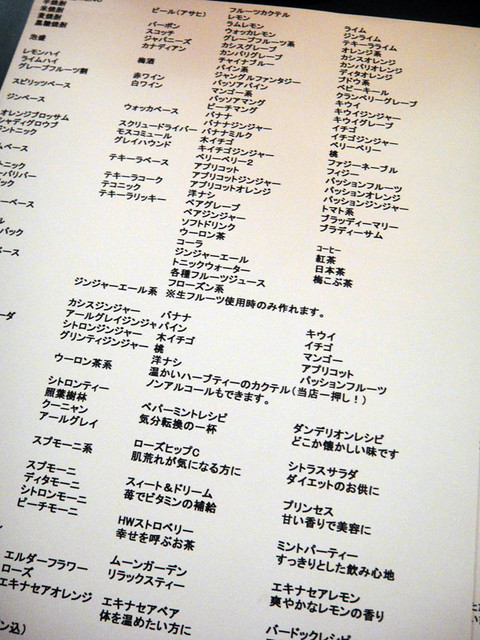 米焼酎
泡盛
レモンハイ
ライムハイ
グレープフルーツ割
スピリッツベース
ジンベース
オレンジブロッサム
シャディグロウブ
ジントニック
ビール(アサヒ)
バーボン
スコッチ
ジャパニーズ
カナディアン
梅酒
赤ワイン
白ワイン
ウォッカベース
スクリュードライバー
モスコミュール
グレイハウンド
テキーラベース
テキーラコーク
テコニック
テキーラリッキー
フルーツカクテル
レモン
ラムレモン
ウォッカレモン
グレープフルーツ系
カシスグレープ
カンパリグレープ
チャイナブルー
パイン系
ジャングルファンタジー
パッソアパイン
マンゴー系
パッソアマング
ピーチマング
バナナ
バナナジンジャー
バナナミルク
木イチゴ
キイチゴジンジャー
ベリーベリー2
アプリコット
アプリコットジンジャー
アプリコットオレンジ
洋ナシ
ペアグレープ
ペアジンジャー
ソフトドリンク
ウーロン茶
コーラ
ジンジャーエール
トニックウォーター
各種フルーツジュース
フローズン系
※生フルーツ使用時のみ作れます。
ライム
ジンライム
テキーラライム
オレンジ系
カシスオレンジ
カンパリオレンジ
ディタオレンジ
ブドウ系
ベビーキール
クランベリーグレープ
キウイ
キウイジンジャー
キウイグレープ
イチゴ
イチゴジンジャー
ベリーベリー
桃
ファジーネーブル
フィジー
パッションフルーツ
パッションオレンジ
パッションジンジャー
トマト系
ブラッディーマリー
ブラディーサム
コーヒー
紅茶
日本茶
梅こぶ茶
ジンジャーエール系
カシスジンジャー
アールグレイジンジャ
シトロンジンジャー
グリンティジンジャー
ウーロン茶系
シトロンティー
照葉樹林
クーニャン
アールグレイ
スプモーニ系
スプモーニ
ディタモーニ
シトロンモーニ
ピーチモーニ
エルダーフラワー
ローズ
エキナセアオレンジ
バナナ
パイン
木イチゴ
桃
洋ナシ
キウイ
イチゴ
マンゴー
アプリコット
パッションフルーツ
温かいハーブティーのカクテル(当店一押し!)
ノンアルコールもできます。
ペパーミントレシピ
気分転換の一杯
ローズヒップC
肌荒れが気になる方に
スィート&ドリーム
苺でビタミンの補給
HWストロベリー
幸せを呼ぶお茶
ムーンガーデン
リラックスティー
エキナセアペア
体を温めたい方に
ダンデリオンレシピ
どこか懐かしい味です
シトラスサラダ
ダイエットのお供に
プリンセス
甘い香りで美容に
ミントパーティー
すっきりとした飲み心地
エキナセアレモン
爽やかなレモンの香り
バードックレシピ